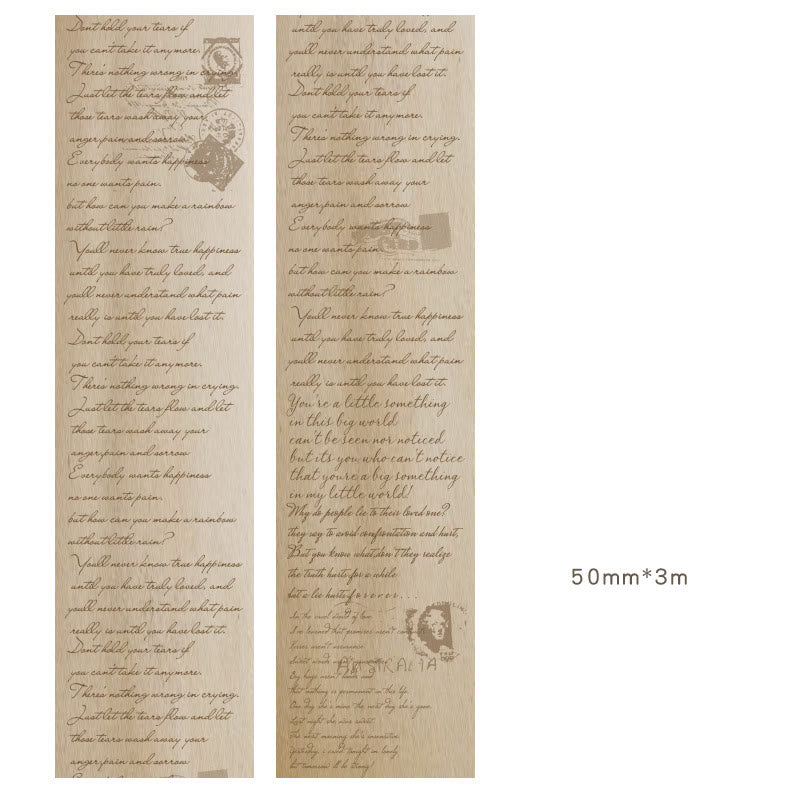 Don't hold your tears if
you can't take it anymore.
There's nothing wrong in crying.
Just let the tears flow and let
those tears wash away your
anger, pain and sorrow
Everybody wants happiness
no one wants pain.
but how can you make a rainbow
without little rain?
You'll never know true happiness
until you have truly loved, and
you'll never understand what pain
really is until you have lost it.
Don't hold your tears if
you can't take it anymore.
There's nothing wrong in crying.
Just let the tears flow and let
those tears wash away your
anger, pain and sorrow
Everybody wants happiness
no one wants pain.
but how can you make a rainbow
without little rain?
You'll never know true happiness
until you have truly loved, and
you'll never understand what pain
really is until you have lost it.
Don't hold your tears if
you can't take it anymore.
There's nothing wrong in crying.
Just let the tears flow and let
those tears wash away your
anger, pain and sorrow
until you have truly loved, and
you'll never understand what pain
really is until you have lost it.
Don't hold your tears if
you can't take it anymore.
There's nothing wrong in crying.
Just let the tears flow and let
those tears wash away your
anger, pain and sorrow
Everybody wants happiness
no one wants pain.
but how can you make a rainbow
without little rain?
You'll never know true happiness
until you have truly loved, and
you'll never understand what pain
really is until you have lost it.
You're a little something
in this big world
can't be seen nor noticed
but its you who can't notice
that you're a big something
in my little world!
Why do people lie to their loved one?
they say to avoid confrontation and hurt,
But you know what don't they realize
the truth hurts for a while
but a lie hurts forever....
In the cruel world of love
I've learned that promises aren't
Kisses aren't assurance
Sweet words
Big hugs aren't
that nothing is permanent in this life.
One day she's mine the next day she's gone.
Last night she was sweet
The next morning she's insensitive
Yesterday, i cried tonight im lonely
but tomorrow ill be strong!
AUSTRALIA
50mm*3m